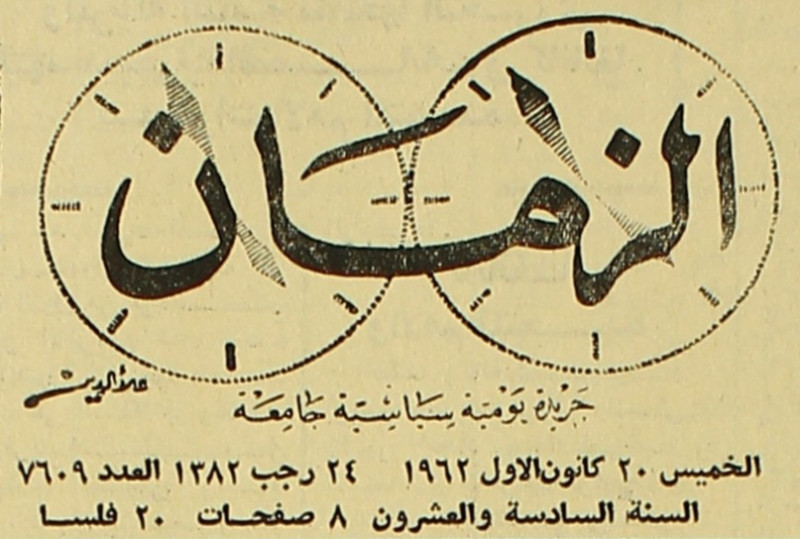 الزمان
علاءالدين
جريدة يومية سياسية جامعة
الخميس ٢٠ كانون الاول ١٩٦٢ ٢٤ رجب ١٣٨٢ العدد ٧٦٠٩
السنة السادسة والعشرون ٨ صفحات ٢٠ فلسا